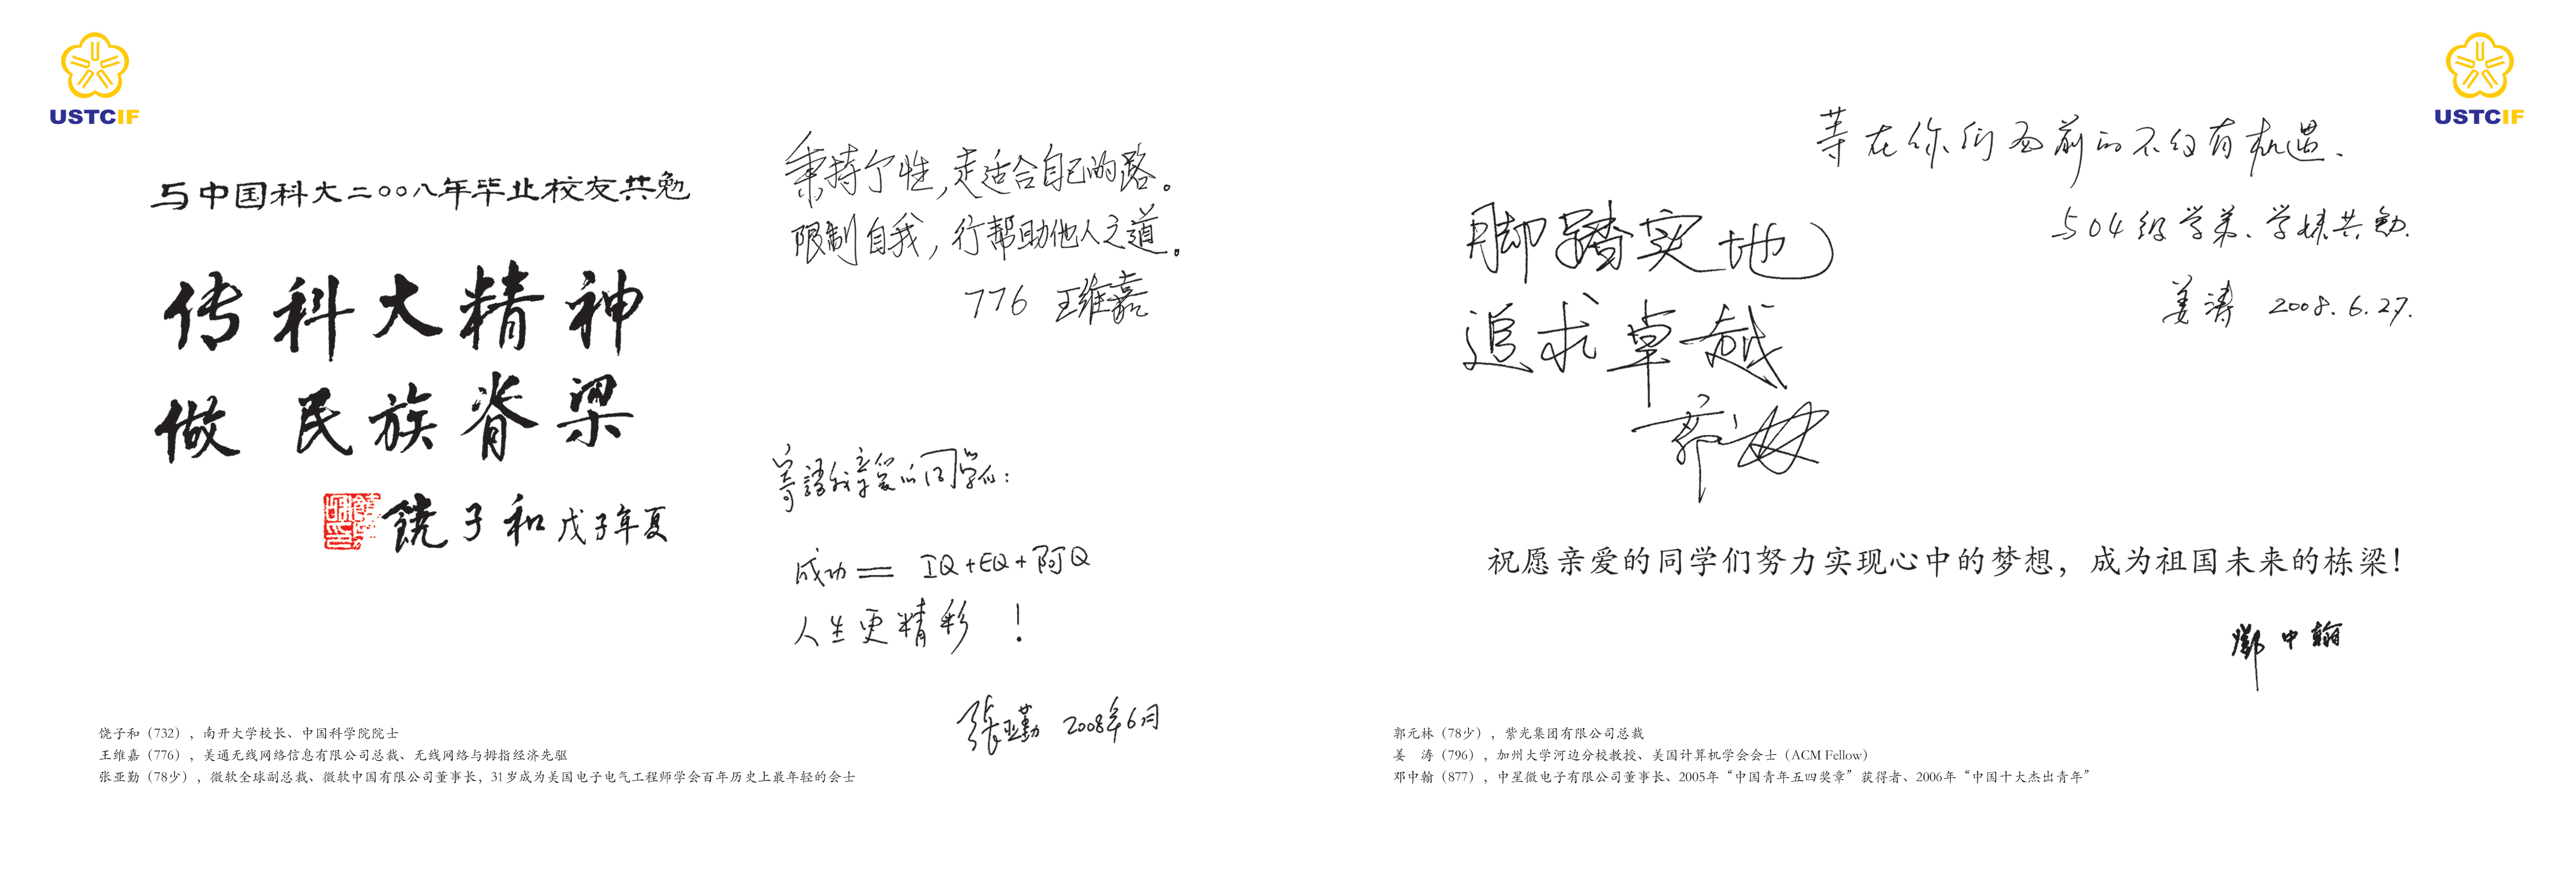 USTCIF
与中国科大二〇〇八年毕业校友共勉
传科大精神
做民族脊梁
饶子和 戊子年夏
秉持个性，走适合自己的路。
限制自我，行帮助他人之道。
776 王维嘉
寄語我亲爱的同学们：
成功 = IQ+EQ+阿Q
人生更精彩！
張亚勤 2008年6月
饶子和（732），南开大学校长、中国科学院院士
王维嘉（776），美通无线网络信息有限公司总裁、无线网络与拇指经济先驱
张亚勤（78少），微软全球副总裁、微软中国有限公司董事长，31岁成为美国电子电气工程师学会百年历史上最年轻的会士
USTCIF
等在你们面前的不仅有机遇.
与04级学弟、学妹共勉.
姜涛 2008.6.27.
脚踏实地
追求卓越
郭元林
祝愿亲爱的同学们努力实现心中的梦想，成为祖国未来的栋梁！
鄧中翰
郭元林（78少），紫光集团有限公司总裁
姜　涛（796），加州大学河边分校教授、美国计算机学会会士（ACM Fellow）
邓中翰（877），中星微电子有限公司董事长、2005年“中国青年五四奖章”获得者、2006年“中国十大杰出青年”